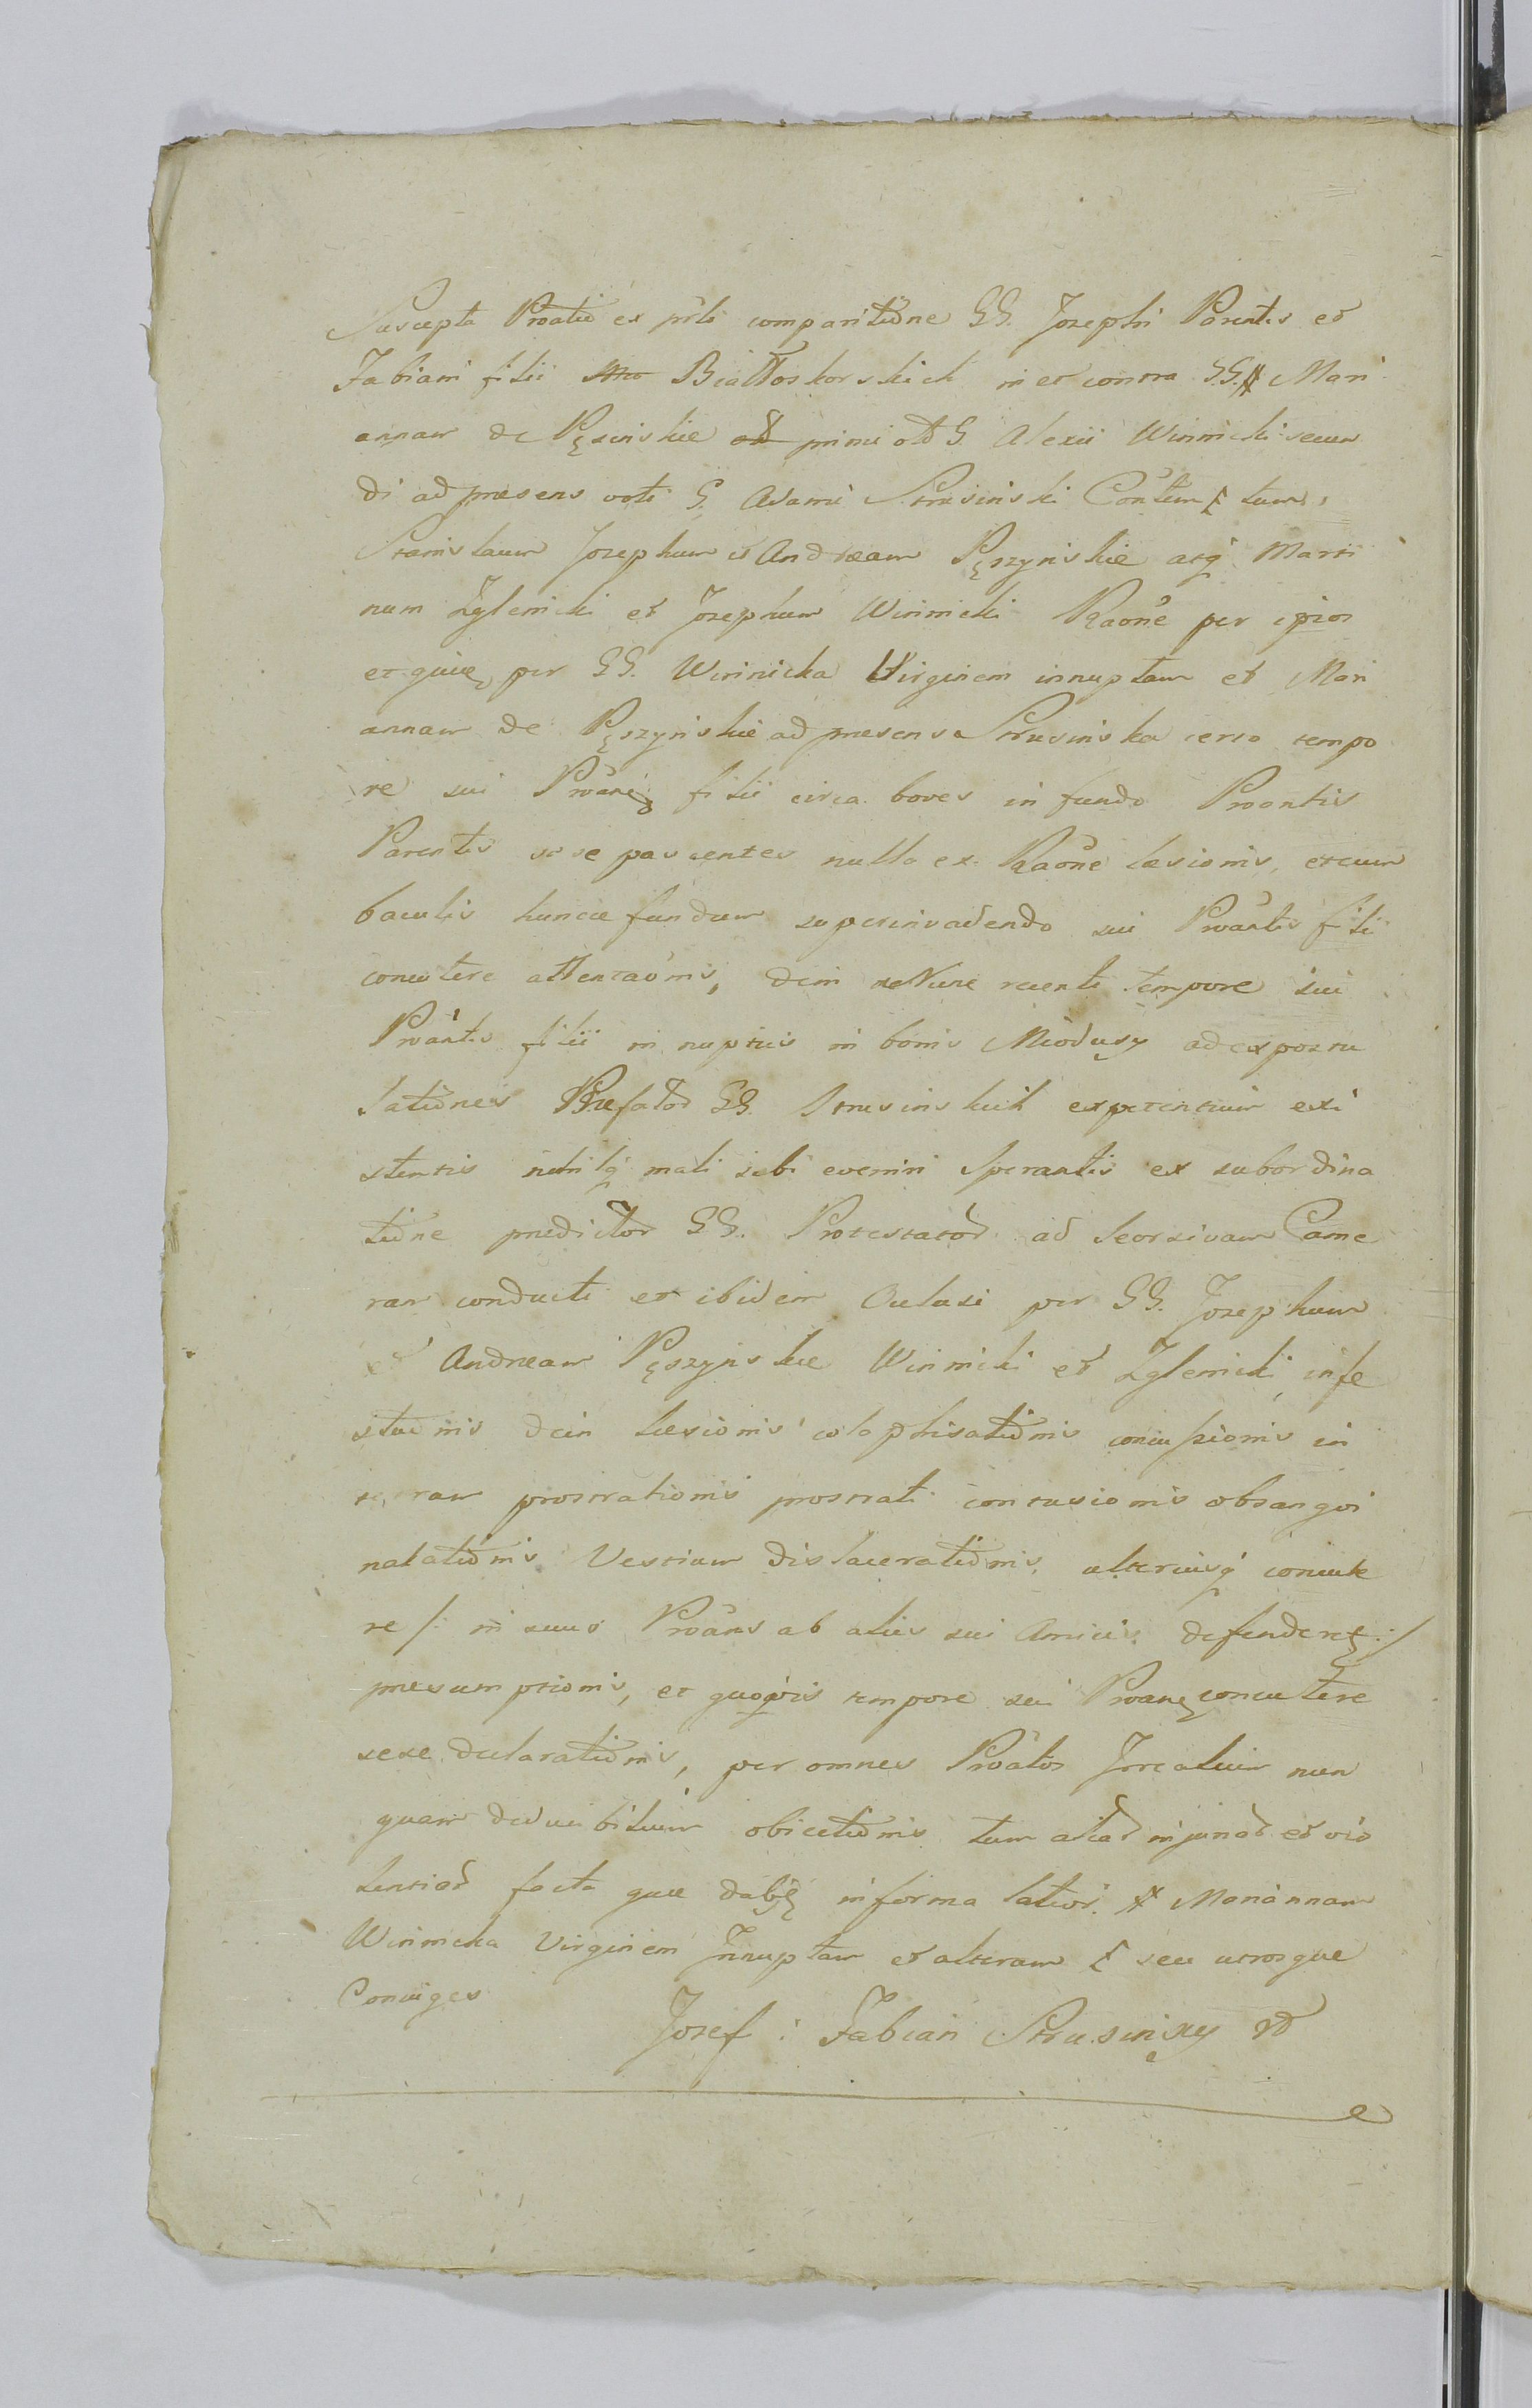 Suscepta Proatio ex prti comparitiōne GG. Josephi Parentis et
Fabiani filii Białłoskorskich in et contra GG. Mari
annam de Pęsinskie primi G. Alexii Winnicki secun
di ad presens voti G. Adami Strusinski Contem tum,
Stanislaum Josephum et Andream Pęszynskie atq Marti
num Zglenicki et Josephum Winnicki Raōne per ipsos
et per GG. Winnicka Virginem innuptam et Mari
annam de Pęszynskie ad presens Strusinska certo tempo
re sui filii circa boves in fundo Proantis
Parentis sese pascentes nulla ex Raōne læsionis, et cum
baculis huncce fundum superinvadendo sui Proantis filii
concutere attentaōnis, dein recenti tempore sui
Proantis filii in nuptiis in bonis Miodusy ad expostu
latiōnes Præfator GG. Strusinskich expetentium exi
stentis nihilq mali sibi eveniri sperantis ex subordina
tiōne predictor GG. Protestator ad seorsivam Came
ram conducti et ibidem Oclusi per GG. Josephum
et Andream Pęszynskie Winnicki et Zglenicki, infe
dein læsionis colaphisatiōnis concussionis in
terram prostrationis prostrati contusionis obsangvi
nolatiōnis Vestium dislaceratiōnis, concute
re /: ni suus Proans ab aliis sui Amicis defenderet :/
presumptionis, et tempore sui concutere
sese declaratiōnis, per omnes Proatos nun
quam obiectiōnis tum aliar injuriar et vio
lentiar facta quæ in forma latiori. Mariannam
Winnicka Virginem Innuptam et alteram seu utrosque
Coniuges
Josef : Fabian